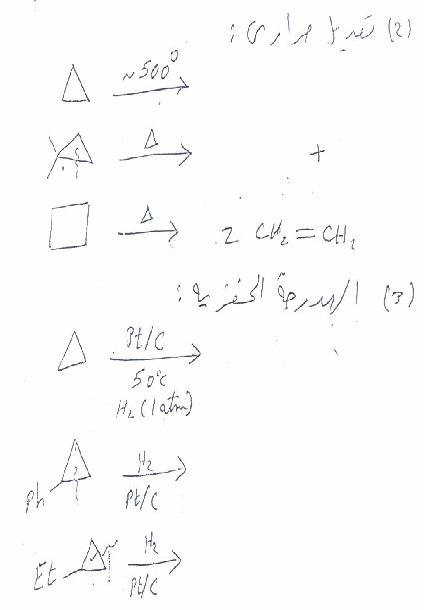 (2) تعديل حراري :
~500°
Δ
+
Δ
2 CH2=CH2
(3) الهدرجة الحفزية :
Pt/C
50°C
H2 (1 atm)
H2
Ph
Pt/C
H2
Et
Pt/C